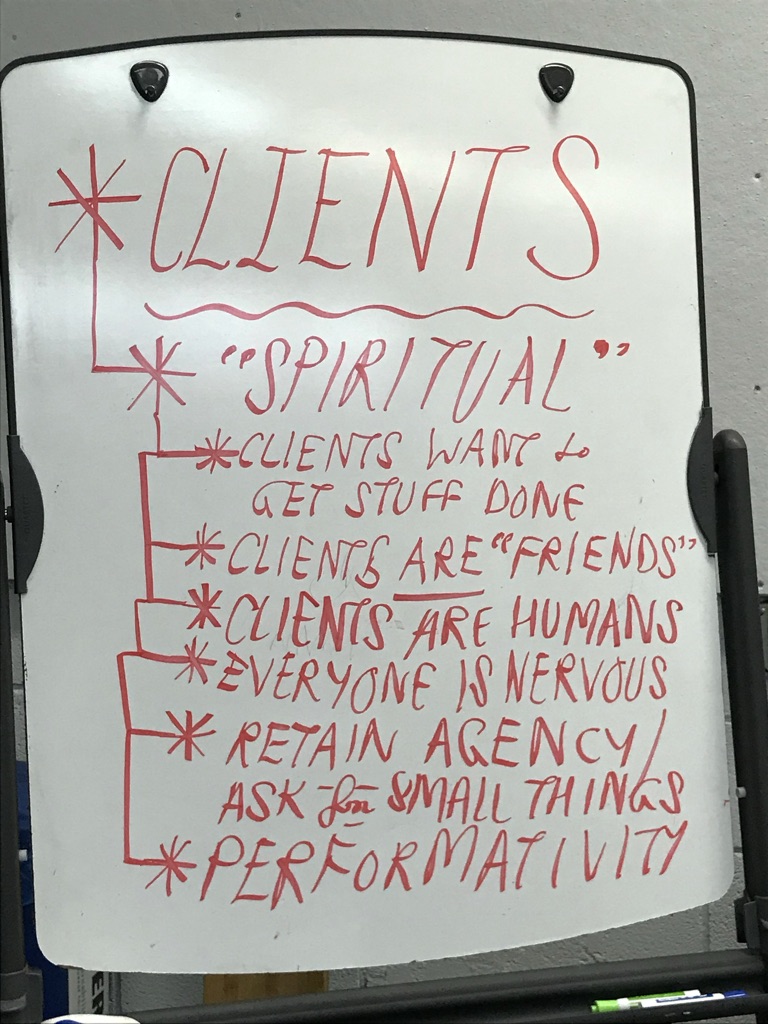 * CLIENTS
* "SPIRITUAL"
* CLIENTS WANT to
GET STUFF DONE
* CLIENTS ARE "FRIENDS"
* CLIENTS ARE HUMANS
* EVERYONE IS NERVOUS
* RETAIN AGENCY/
ASK for SMALL THINGS
* PERFORMATIVITY